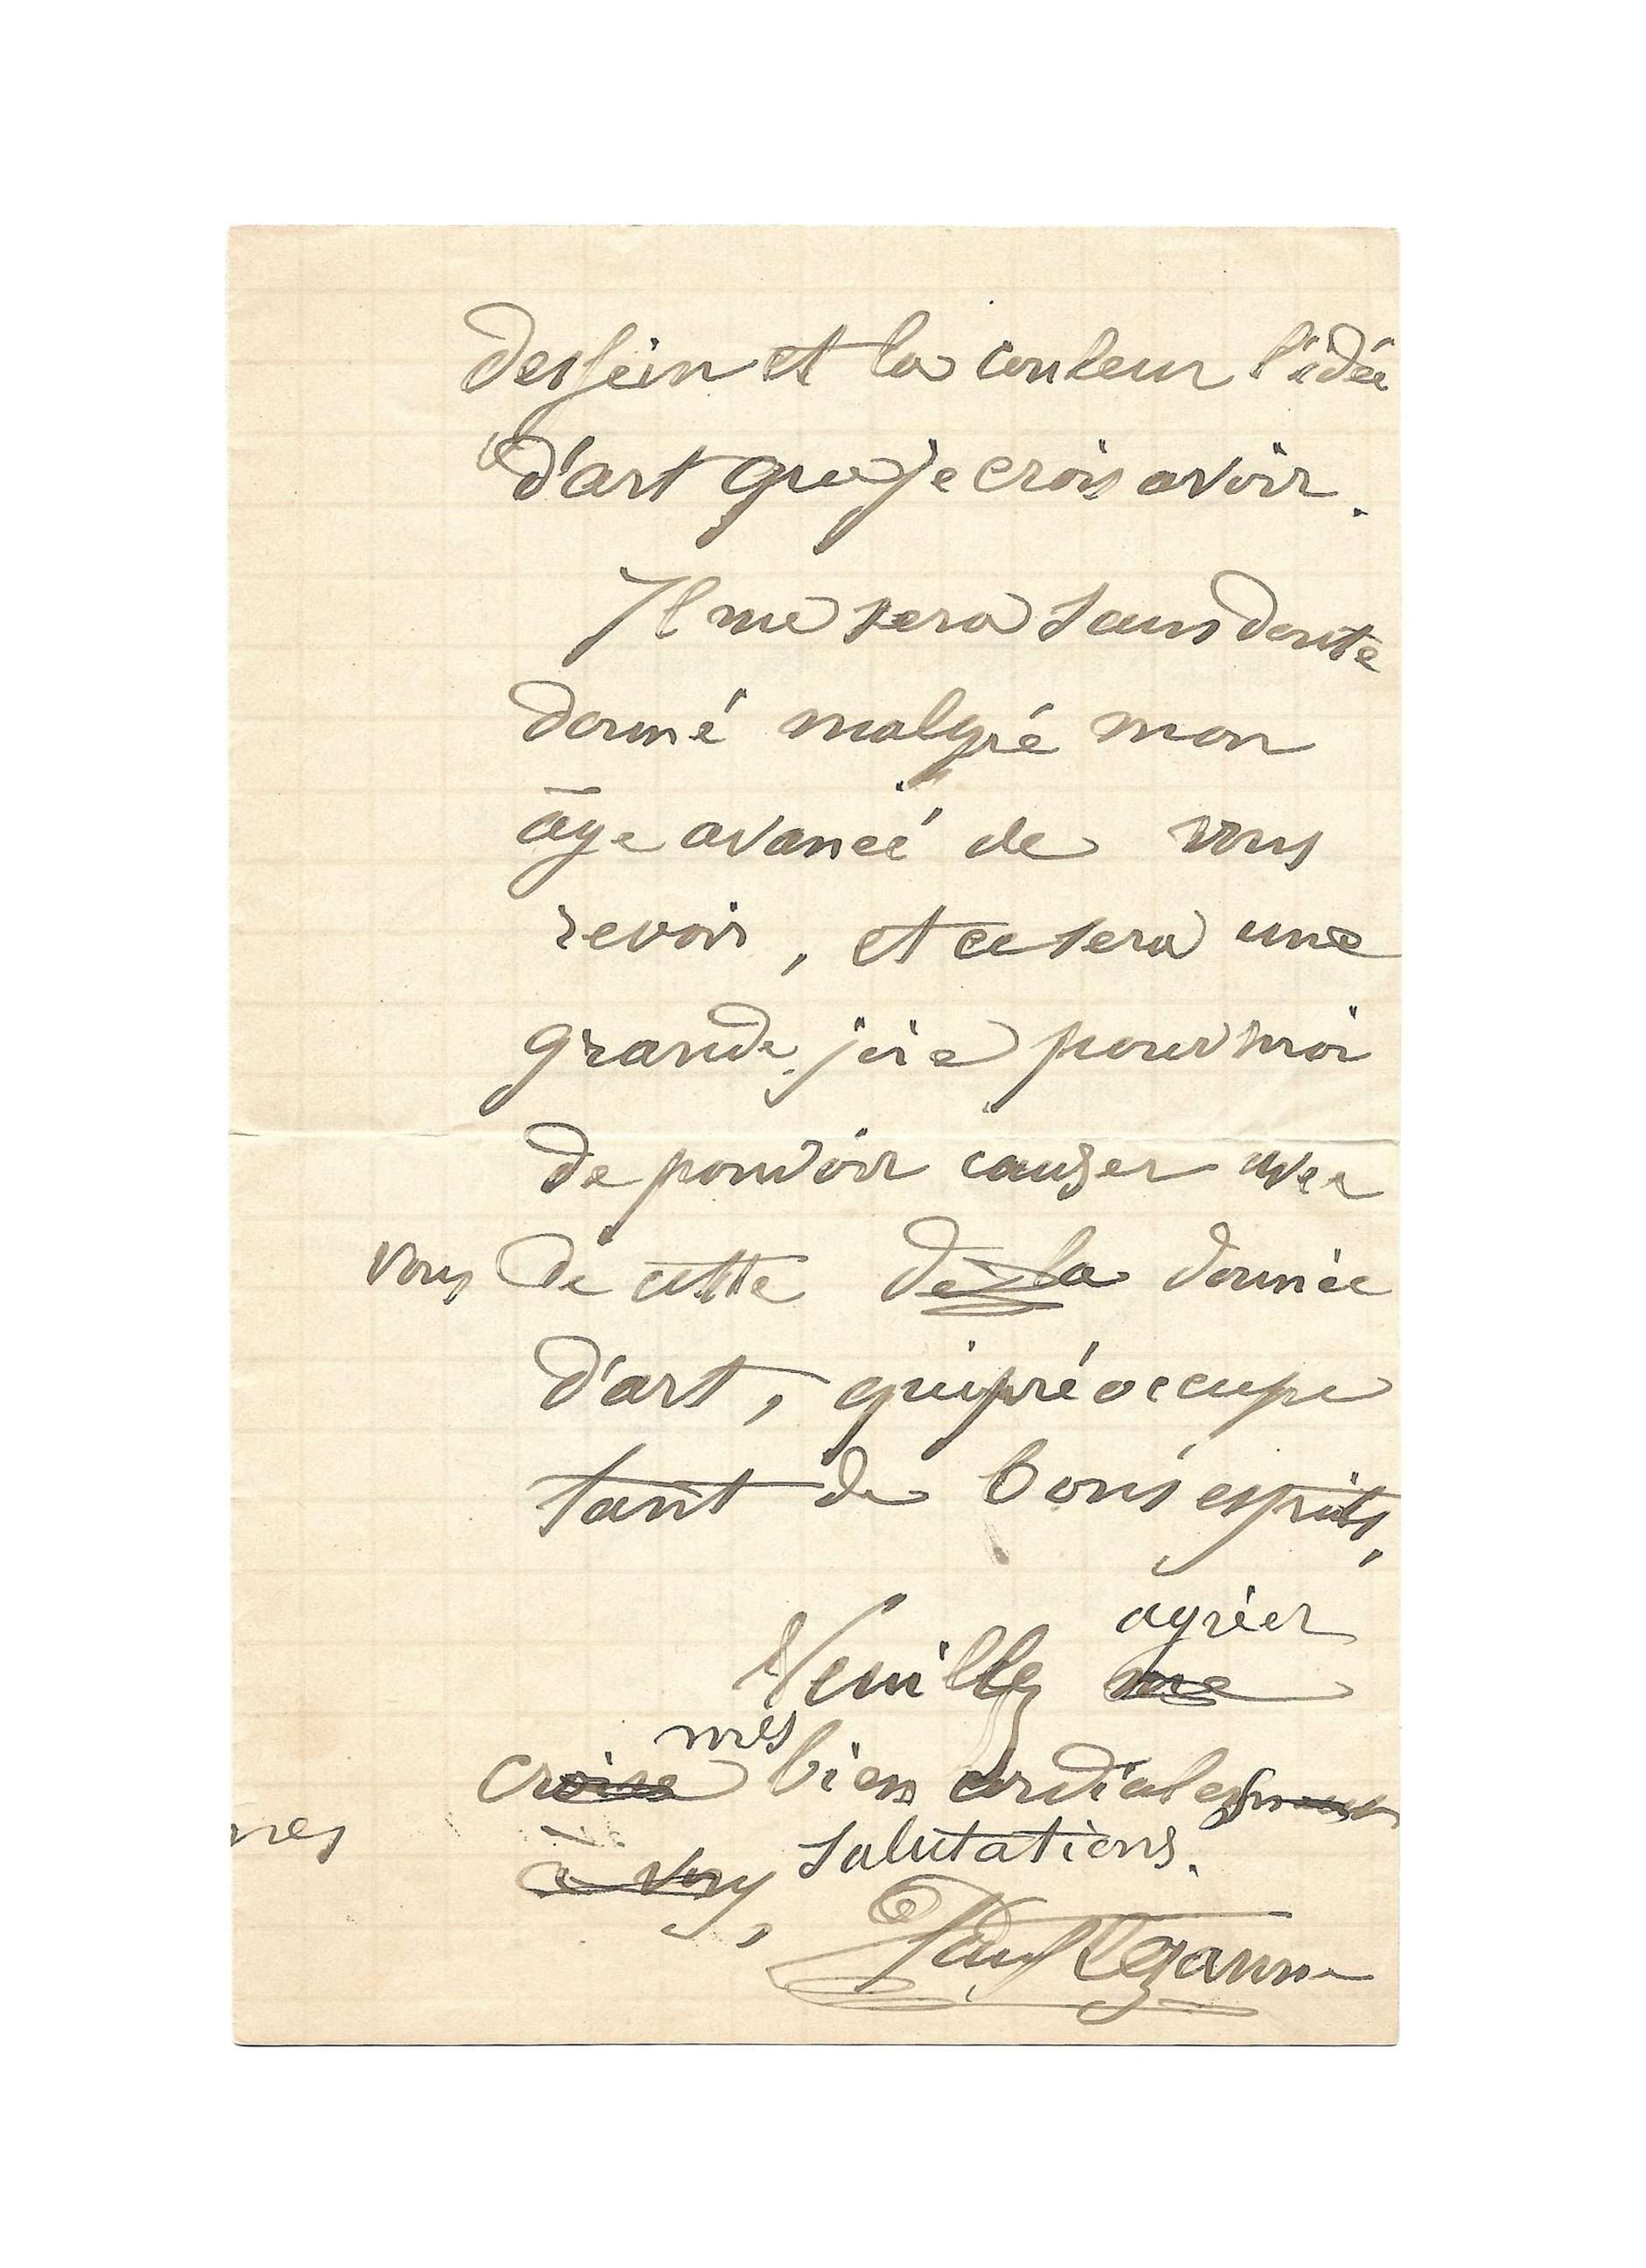 dessein et la couleur l'idée
d'art que je crois avoir.
Il me sera sans doute
donné malgré mon
âge avancé de vous
revoir, et ce sera une
grande joie pour moi
de pouvoir causer avec
vous de cette de la donnée
d'art, qui préoccupe
tant de bons esprits,
agréer
Veuillez me
mes
croire bien cordialement
nes
à vous, salutations.
Paul Cézanne